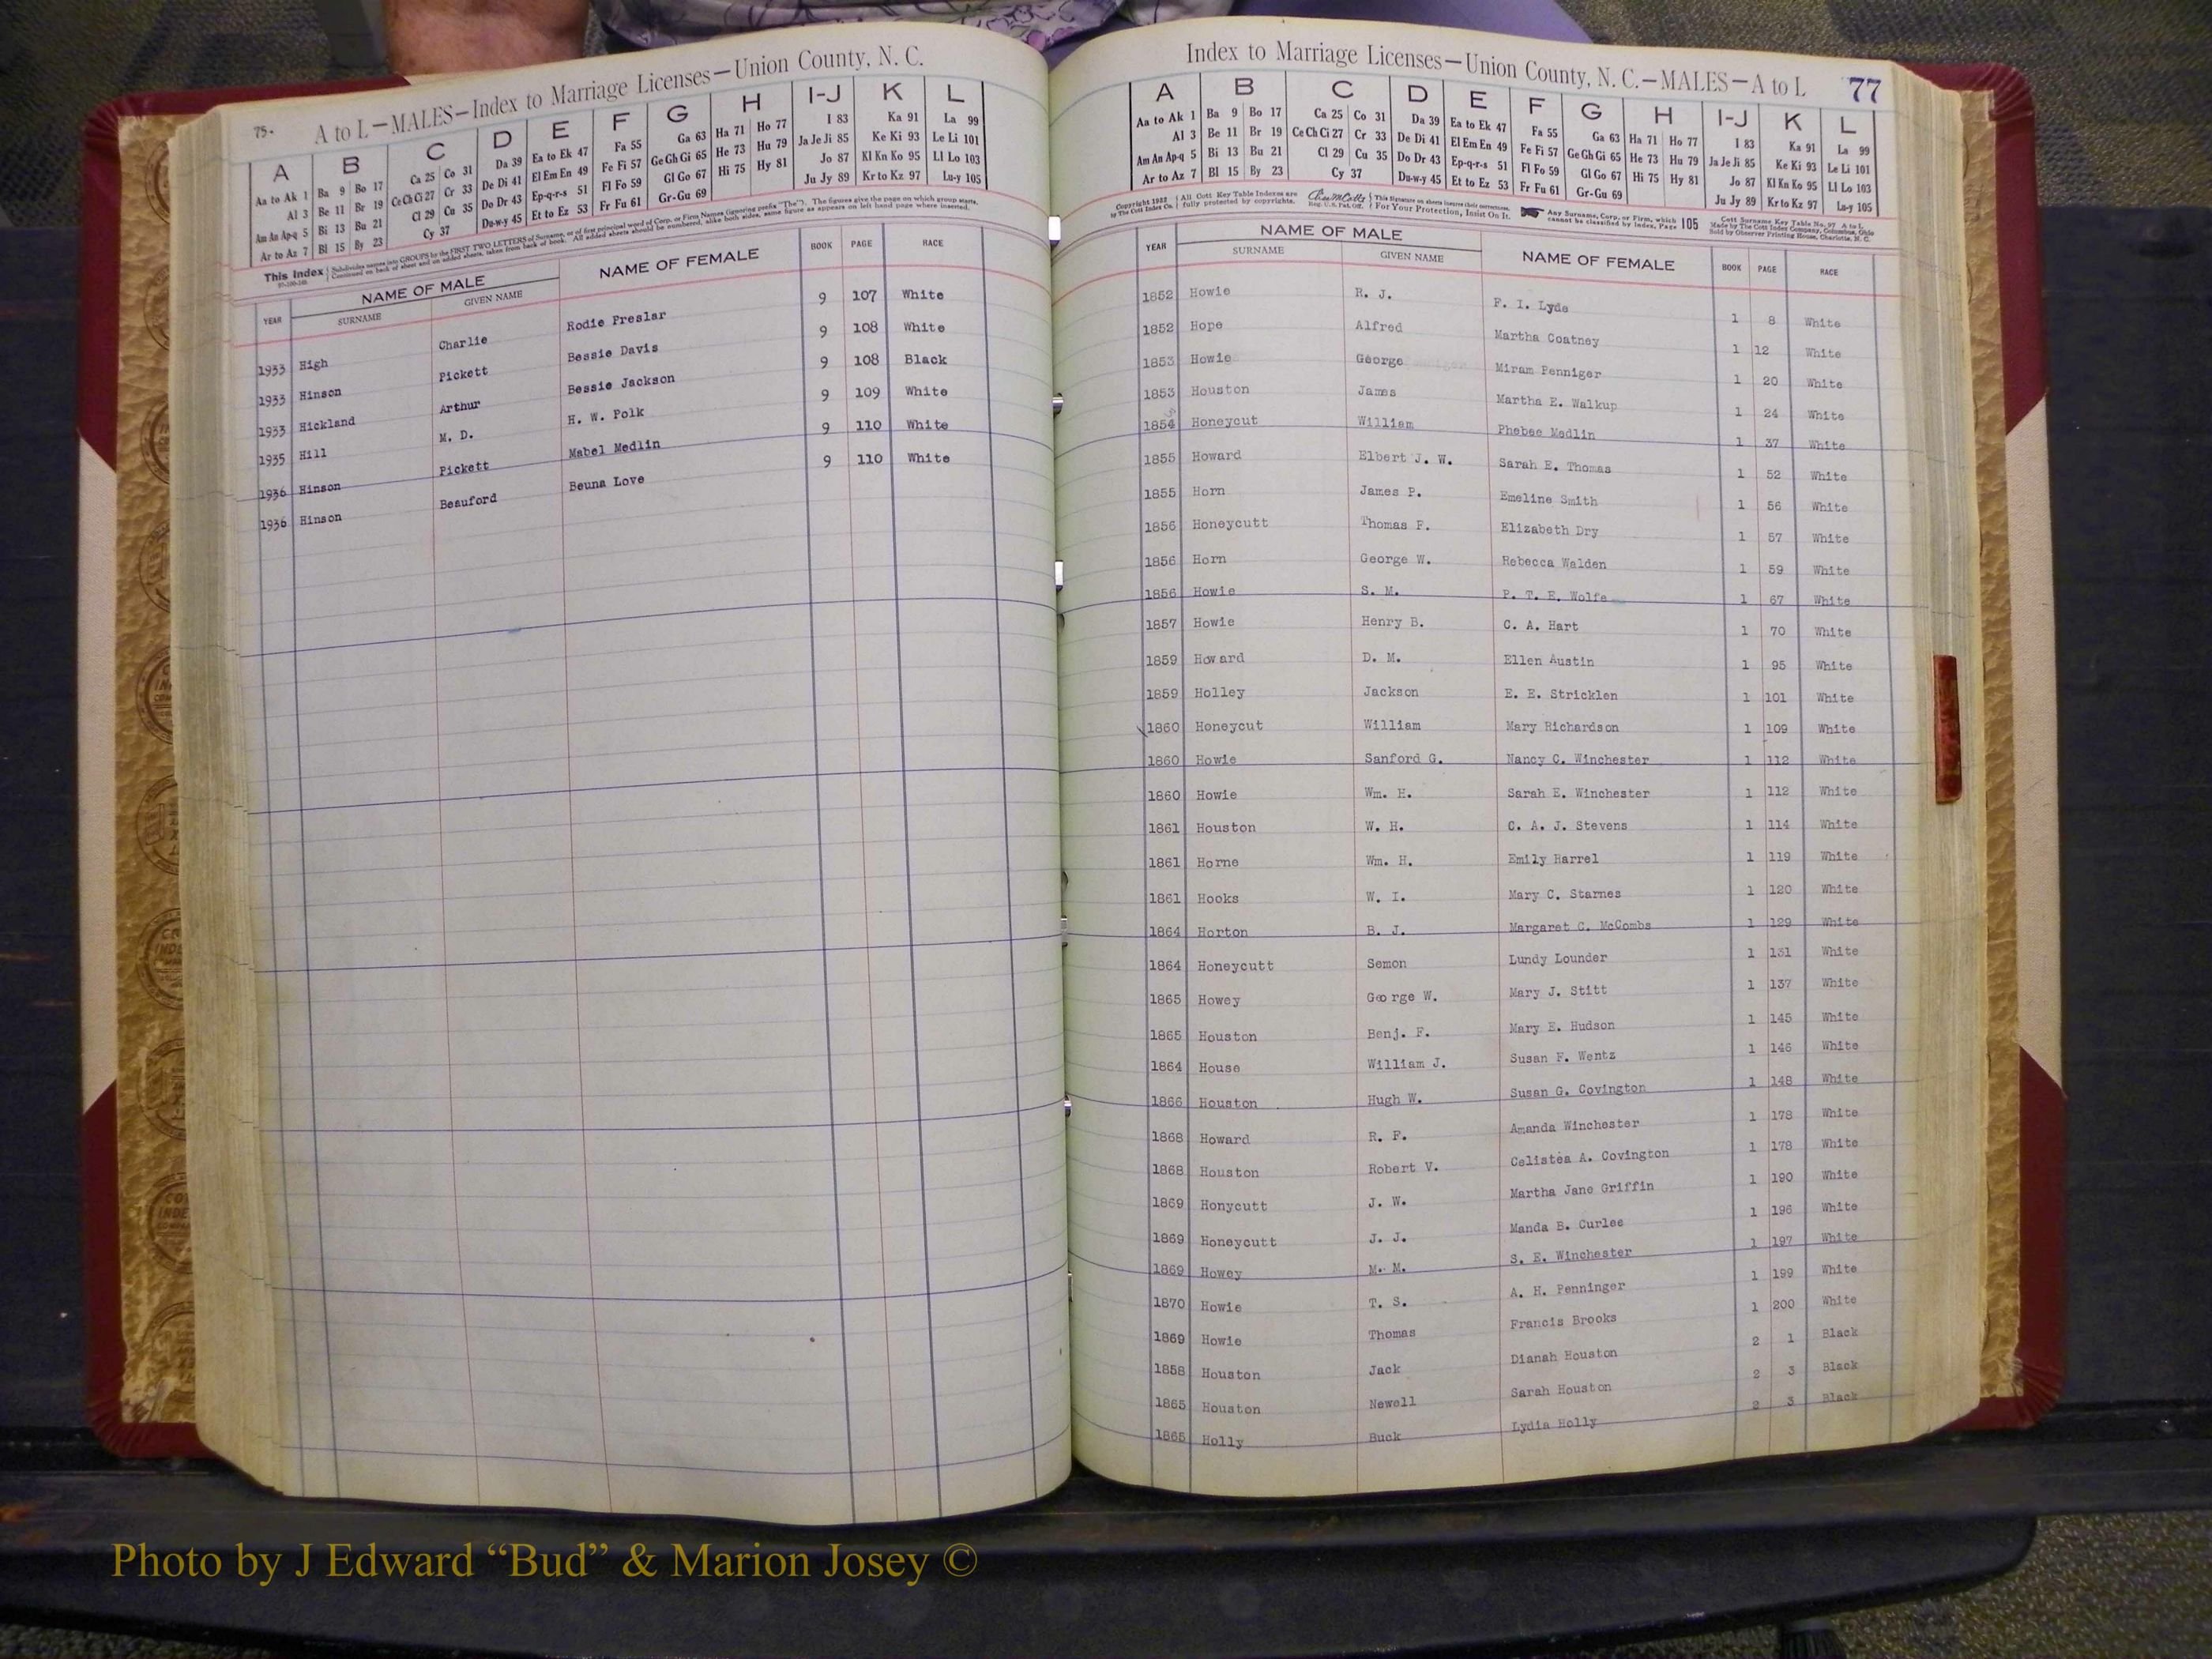 75-
A to L—MALES—Index to Marriage Licenses—Union County, N. C.
A B C D E F G H I-J K L
Aa to Ak 1 Ba 9 Bo 17 Ca 25 Co 31 Da 39 Ea to Ek 47 Fa 55 Ga 63 Ha 71 Ho 77 I 83 Ka 91 La 99
Al 3 Be 11 Br 19 Ce Ch Ci 27 Cr 33 De Di 41 El Em En 49 Fe Fi 57 Ge Gh Gi 65 He 73 Hu 79 Ja Je Ji 85 Ke Ki 93 Le Li 101
Am An Ap-q 5 Bi 13 Bu 21 Cl 29 Cu 35 Do Dr 43 Ep-q-r-s 51 Fl Fo 59 Gl Go 67 Hi 75 Hy 81 Jo 87 Kl Kn Ko 95 Ll Lo 103
Ar to Az 7 Bl 15 By 23 Cy 37 Du-w-y 45 Et to Ez 53 Fr Fu 61 Gr-Gu 69 Ju Jy 89 Kr to Kz 97 Lu-y 105
This Index Subdivides names into GROUPS by the FIRST TWO LETTERS of Surname, or of first principal word of Corp. or Firm Names (ignoring prefix "The"). The figures give the page on which group starts.
Continued on back of sheet and on added sheets, taken from back of book. All added sheets should be numbered, alike both sides, same figure as appears on left hand page where inserted.
YEAR NAME OF MALE SURNAME GIVEN NAME NAME OF FEMALE BOOK PAGE RACE
1933 High Charlie Rodie Preslar 9 107 White
1933 Hinson Pickett Bessie Davis 9 108 White
1933 Hickland Arthur Bessie Jackson 9 108 Black
1935 Hill M. D. H. W. Polk 9 109 White
1936 Hinson Pickett Mabel Medlin 9 110 White
1936 Hinson Beauford Beuna Love 9 110 White
Index to Marriage Licenses—Union County, N. C.—MALES—A to L 77
A B C D E F G H I-J K L
Aa to Ak 1 Ba 9 Bo 17 Ca 25 Co 31 Da 39 Ea to Ek 47 Fa 55 Ga 63 Ha 71 Ho 77 I 83 Ka 91 La 99
Al 3 Be 11 Br 19 Ce Ch Ci 27 Cr 33 De Di 41 El Em En 49 Fe Fi 57 Ge Gh Gi 65 He 73 Hu 79 Ja Je Ji 85 Ke Ki 93 Le Li 101
Am An Ap-q 5 Bi 13 Bu 21 Cl 29 Cu 35 Do Dr 43 Ep-q-r-s 51 Fl Fo 59 Gl Go 67 Hi 75 Hy 81 Jo 87 Kl Kn Ko 95 Ll Lo 103
Ar to Az 7 Bl 15 By 23 Cy 37 Du-w-y 45 Et to Ez 53 Fr Fu 61 Gr-Gu 69 Ju Jy 89 Kr to Kz 97 Lu-y 105
Copyright 1922 by The Cott Index Co. All Cott Key Table Indexes are fully protected by copyrights. Reg. U.S. Pat. Off. This Signature on sheets insures their correctness. For Your Protection, Insist On It. Any Surname, Corp. or Firm, which cannot be classified by Index, Page 105 Cott Surname Key Table No. 97 A to L
Made by The Cott Index Company, Columbus, Ohio
Sold by Observer Printing House, Charlotte, N. C.
YEAR NAME OF MALE SURNAME GIVEN NAME NAME OF FEMALE BOOK PAGE RACE
1852 Howie R. J. F. I. Lyde 1 8 White
1852 Hope Alfred Martha Coatney 1 12 White
1853 Howie George Miram Penniger 1 20 White
1853 Houston James Martha E. Walkup 1 24 White
1854 Honeycut William Phebee Medlin 1 37 White
1855 Howard Elbert J. W. Sarah E. Thomas 1 52 White
1855 Horn James P. Emeline Smith 1 56 White
1856 Honeycutt Thomas F. Elizabeth Dry 1 57 White
1856 Horn George W. Rebecca Walden 1 59 White
1856 Howie S. M. P. T. E. Wolfe 1 67 White
1857 Howie Henry B. C. A. Hart 1 70 White
1859 Howard D. M. Ellen Austin 1 95 White
1859 Holley Jackson E. E. Stricklen 1 101 White
1860 Honeycut William Mary Richardson 1 109 White
1860 Howie Sanford G. Nancy C. Winchester 1 112 White
1860 Howie Wm. H. Sarah E. Winchester 1 112 White
1861 Houston W. H. C. A. J. Stevens 1 114 White
1861 Horne Wm. H. Emily Harrel 1 119 White
1861 Hooks W. I. Mary C. Starnes 1 120 White
1864 Horton B. J. Margaret C. McCombs 1 129 White
1864 Honeycutt Semon Lundy Lounder 1 131 White
1865 Howey George W. Mary J. Stitt 1 137 White
1865 Houston Benj. F. Mary E. Hudson 1 145 White
1864 House William J. Susan F. Wentz 1 146 White
1866 Houston Hugh W. Susan G. Covington 1 148 White
1868 Howard R. F. Amanda Winchester 1 178 White
1868 Houston Robert V. Celistea A. Covington 1 178 White
1869 Honycutt J. W. Martha Jane Griffin 1 190 White
1869 Honeycutt J. J. Manda B. Curlee 1 196 White
1869 Howey M. M. S. E. Winchester 1 197 White
1870 Howie T. S. A. H. Penninger 1 199 White
1869 Howie Thomas Francis Brooks 1 200 White
1858 Houston Jack Dianah Houston 2 1 Black
1865 Houston Newell Sarah Houston 2 3 Black
1865 Holly Buck Lydia Holly 2 3 Black
Photo by J Edward “Bud” & Marion Josey ©